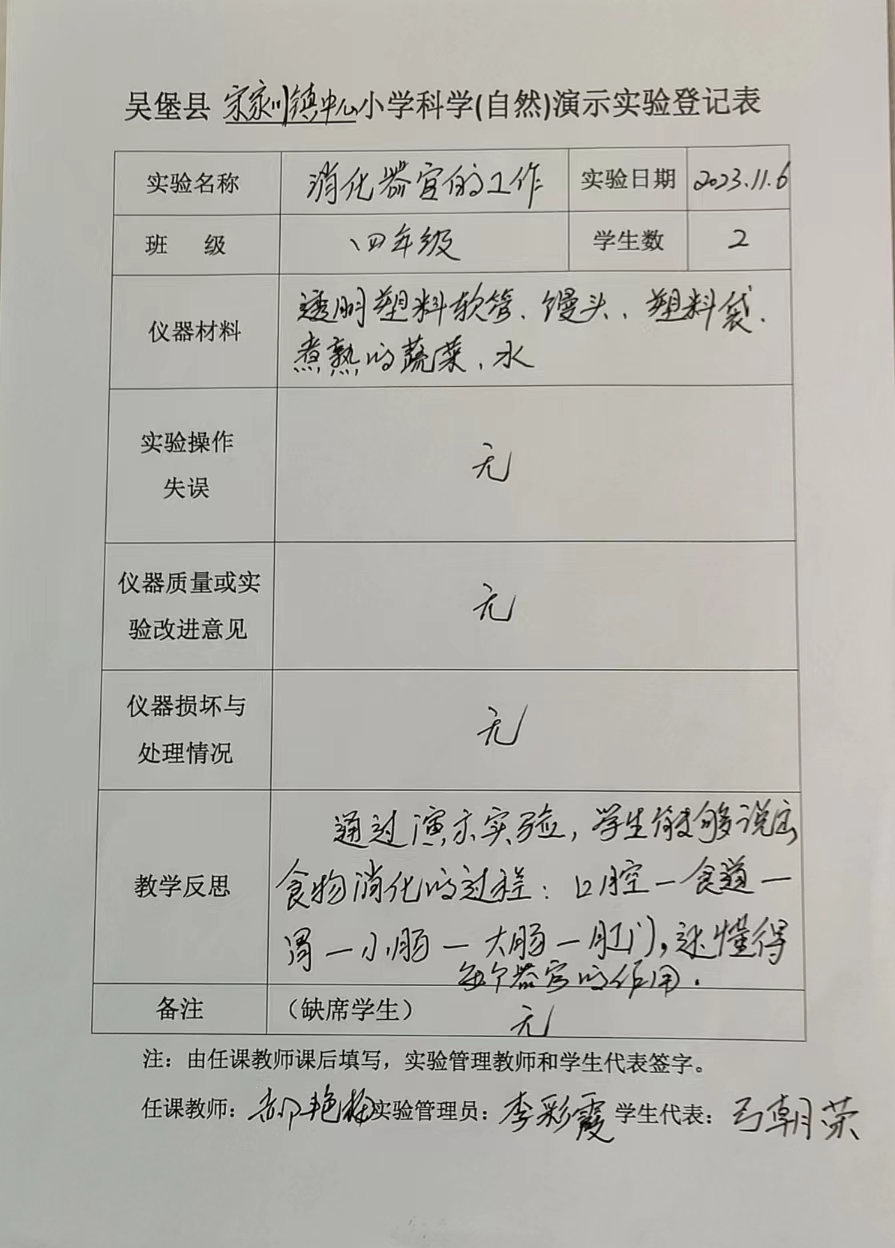 吴堡县 宋家川镇中心小学科学(自然)演示实验登记表
实验名称 消化器官的工作 实验日期 2023.11.6
班 级 四年级 学生数 2
仪器材料 透明塑料软管、馒头、塑料袋、
煮熟的蔬菜、水
实验操作
失误
无
仪器质量或实
验改进意见
无
仪器损坏与
处理情况
无
教学反思
通过演示实验,学生能够说出
食物消化的过程:口腔—食道—
胃—小肠—大肠—肛门,还懂得
每个器官的作用.
备注 (缺席学生) 无
注:由任课教师课后填写,实验管理教师和学生代表签字。
任课教师:郝艳梅 实验管理员:李彩霞 学生代表:弓朝荣